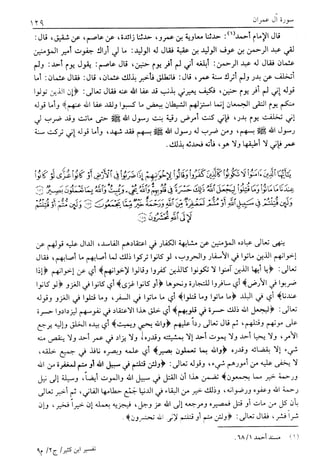 سورة آل عمران ١٢٩
قال الإمام أحمد(١): حدثنا معاوية بن عمرو، حدثنا زائدة، عن عاصم، عن شقيق، قال:
لقي عبد الرحمن بن عوف الوليد بن عقبة فقال له الوليد: ما لي أراك جفوت أمير المؤمنين
عثمان فقال له عبد الرحمن: أبلغه أني لم أفر يوم حنين، قال عاصم: يقول يوم أحد: ولم
أتخلف عن بدر ولم أترك سنة عمر، قال: فانطلق فأخبر بذلك عثمان، قال: فقال عثمان: أما
قوله إني لم أفر يوم حنين، فكيف يعيرني بذنب قد عفا الله عنه فقال تعالى: ﴿إن الذين تولوا
منكم يوم التقى الجمعان إنما استزلهم الشيطان ببعض ما كسبوا ولقد عفا الله عنهم﴾ وأما قوله
إني تخلفت يوم بدر، فإني كنت أمرض رقية بنت رسول الله ﷺ حتى ماتت وقد ضرب لي
رسول الله ﷺ بسهم، ومن ضرب له رسول الله ﷺ بسهم فقد شهد، وأما قوله إني تركت سنة
عمر فإني لا أطيقها ولا هو، فأته فحدثه بذلك.
يَا أَيُّهَا الَّذِينَ آمَنُوا لَا تَكُونُوا كَالَّذِينَ كَفَرُوا وَقَالُوا لِإِخْوَانِهِمْ إِذَا ضَرَبُوا فِي الْأَرْضِ أَوْ كَانُوا غُزًّى لَّوْ كَانُوا
عِندَنَا مَا مَاتُوا وَمَا قُتِلُوا لِيَجْعَلَ اللَّهُ ذَٰلِكَ حَسْرَةً فِي قُلُوبِهِمْ وَاللَّهُ يُحْيِي وَيُمِيتُ وَاللَّهُ بِمَا تَعْمَلُونَ بَصِيرٌ ١٥٦
وَلَئِن قُتِلْتُمْ فِي سَبِيلِ اللَّهِ أَوْ مُتُّمْ لَمَغْفِرَةٌ مِّنَ اللَّهِ وَرَحْمَةٌ خَيْرٌ مِّمَّا يَجْمَعُونَ ١٥٧ وَلَئِن مُّتُّمْ أَوْ قُتِلْتُمْ
لَإِلَى اللَّهِ تُحْشَرُونَ ١٥٨
ينهى تعالى عباده المؤمنين عن مشابهة الكفار في اعتقادهم الفاسد، الدال عليه قولهم عن
إخوانهم الذين ماتوا في الأسفار والحروب، لو كانوا تركوا ذلك لما أصابهم ما أصابهم، فقال
تعالى: ﴿يا أيها الذين آمنوا لا تكونوا كالذين كفروا وقالوا لإخوانهم﴾ أي عن إخوانهم ﴿إذا
ضربوا في الأرض﴾ أي سافروا للتجارة ونحوها ﴿أو كانوا غزى﴾ أي كانوا في الغزو ﴿لو كانوا
عندنا﴾ أي في البلد ﴿ما ماتوا وما قتلوا﴾ أي ما ماتوا في السفر، وما قتلوا في الغزو وقوله
تعالى: ﴿ليجعل الله ذلك حسرة في قلوبهم﴾ أي خلق هذا الاعتقاد في نفوسهم ليزدادوا حسرة
على موتهم وقتلهم، ثم قال تعالى رداً عليهم ﴿والله يحيي ويميت﴾ أي بيده الخلق وإليه يرجع
الأمر، ولا يحيا أحد ولا يموت أحد إلا بمشيئته وقدره، ولا يزاد في عمر أحد ولا ينقص منه
شيء إلا بقضائه وقدره ﴿والله بما تعملون بصير﴾ أي علمه وبصره نافذ في جميع خلقه،
لا يخفى عليه من أمورهم شيء، وقوله تعالى: ﴿ولئن قتلتم في سبيل الله أو متم لمغفرة من الله
ورحمة خير مما يجمعون﴾ تضمن هذا أن القتل في سبيل الله والموت أيضاً، وسيلة إلى نيل
رحمة الله وعفوه ورضوانه، وذلك خير من البقاء في الدنيا جمع حطامها الفاني، ثم أخبر تعالى
بأن كل من مات أو قتل فمصيره ومرجعه إلى الله عز وجل، فيجزيه بعمله إن خيراً فخير، وإن
شراً فشر، فقال تعالى: ﴿ولئن متم أو قتلتم لإلى الله تحشرون﴾.
(١) مسند أحمد ٦٨/١.
تفسير ابن كثير/ ج٢/ م٩